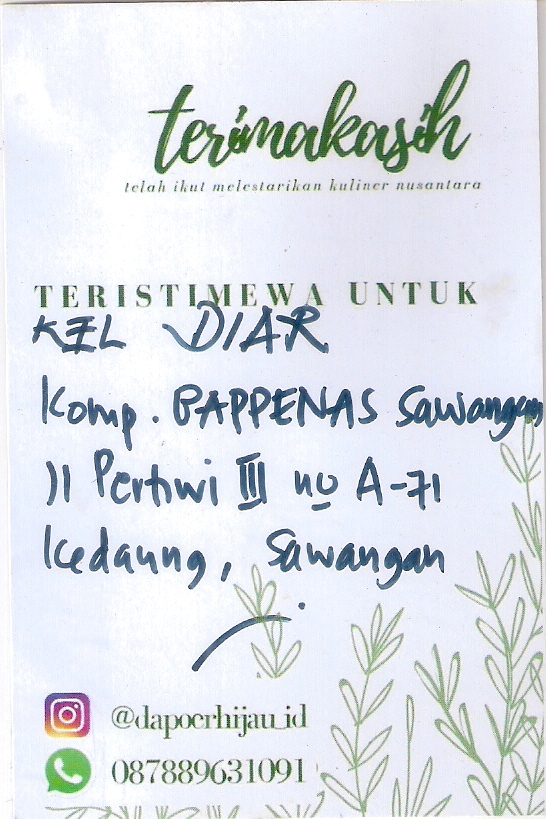 terimakasih
telah ikut melestarikan kuliner nusantara
TERISTIMEWA UNTUK
KEL DIAR
Komp. BAPPENAS Sawangan
Jl Pertiwi III no A-71
Kedaung, Sawangan
@dapoerhijau_id
087889631091